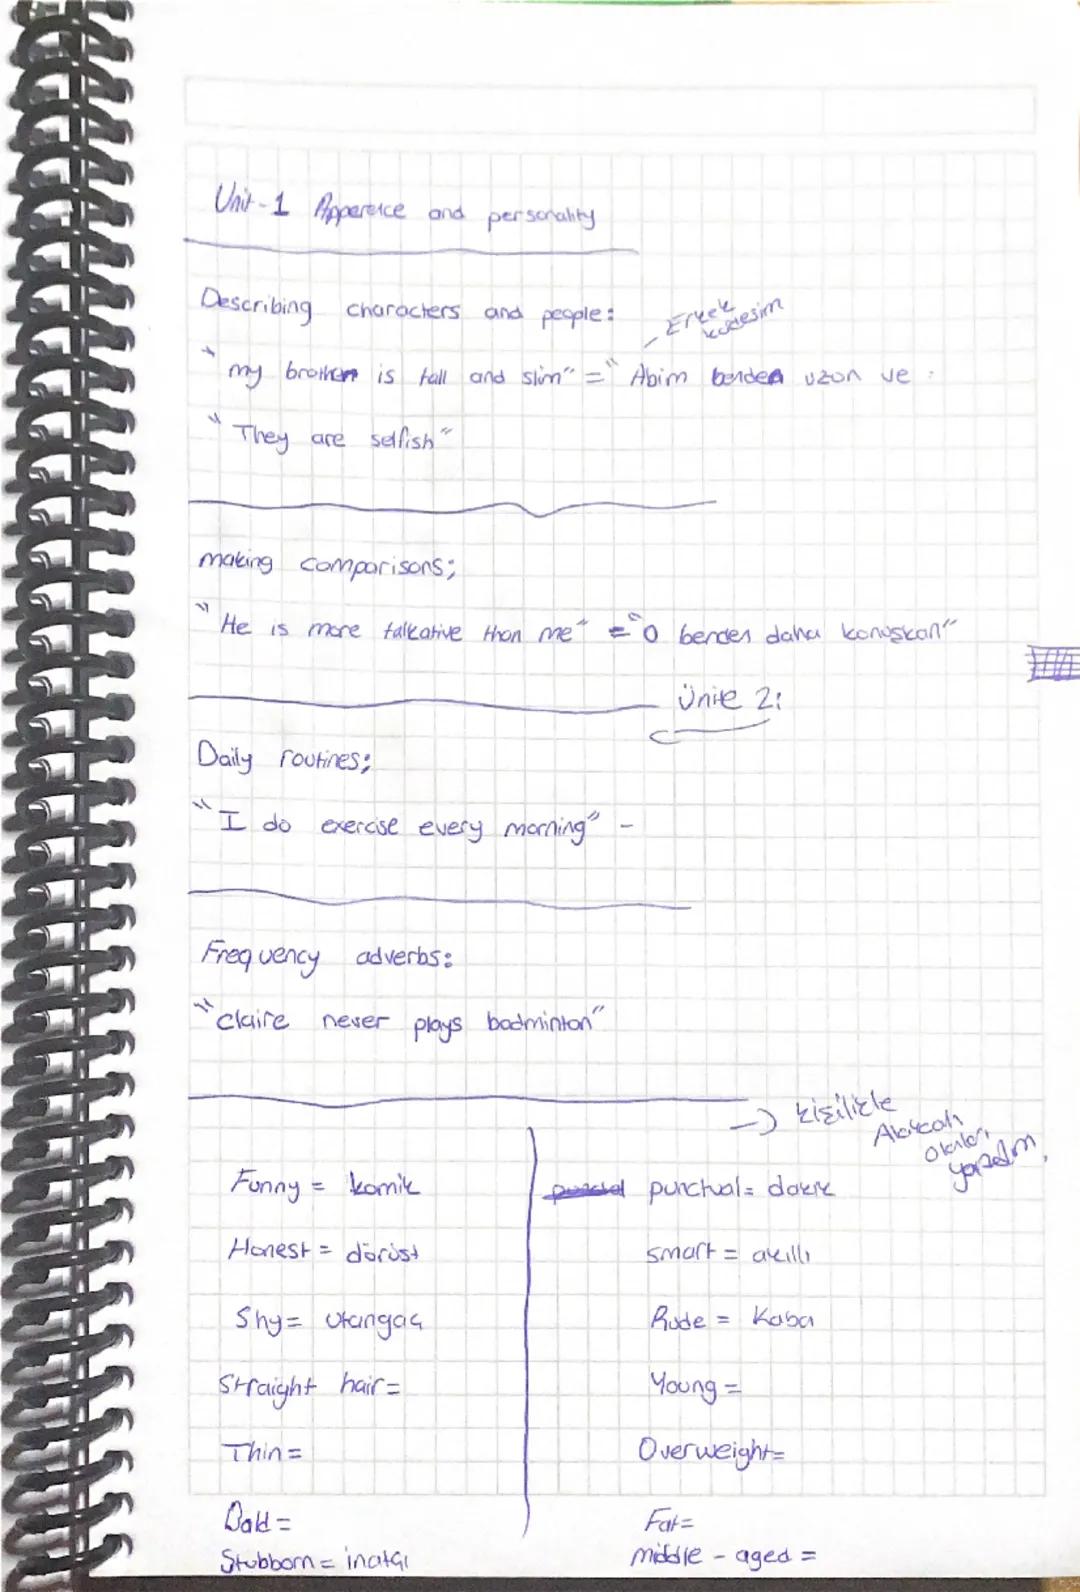 Unit-1 Apperence and personality
Describing characters and people:
Erkek
"my brother is tall and slim" = "Abim benden uzun ve :
"They are selfish"
making comparisons;
"He is more talkative than me" = "O benden daha konuşkan"
Ünite 2:
Daily routines;
"I do exercise every morning" -
Frequency adverbs:
"claire never plays badminton"
-> kişilikle
Alakalı
olanları
yazalım.
Funny = komik
Honest = dürüst
Shy = utangaç
Straight hair =
Thin =
Bald =
Stubborn = inatçı
punctual = dakik
smart = akıllı
Rude = Kaba
Young =
Overweight =
Fat =
middle - aged =